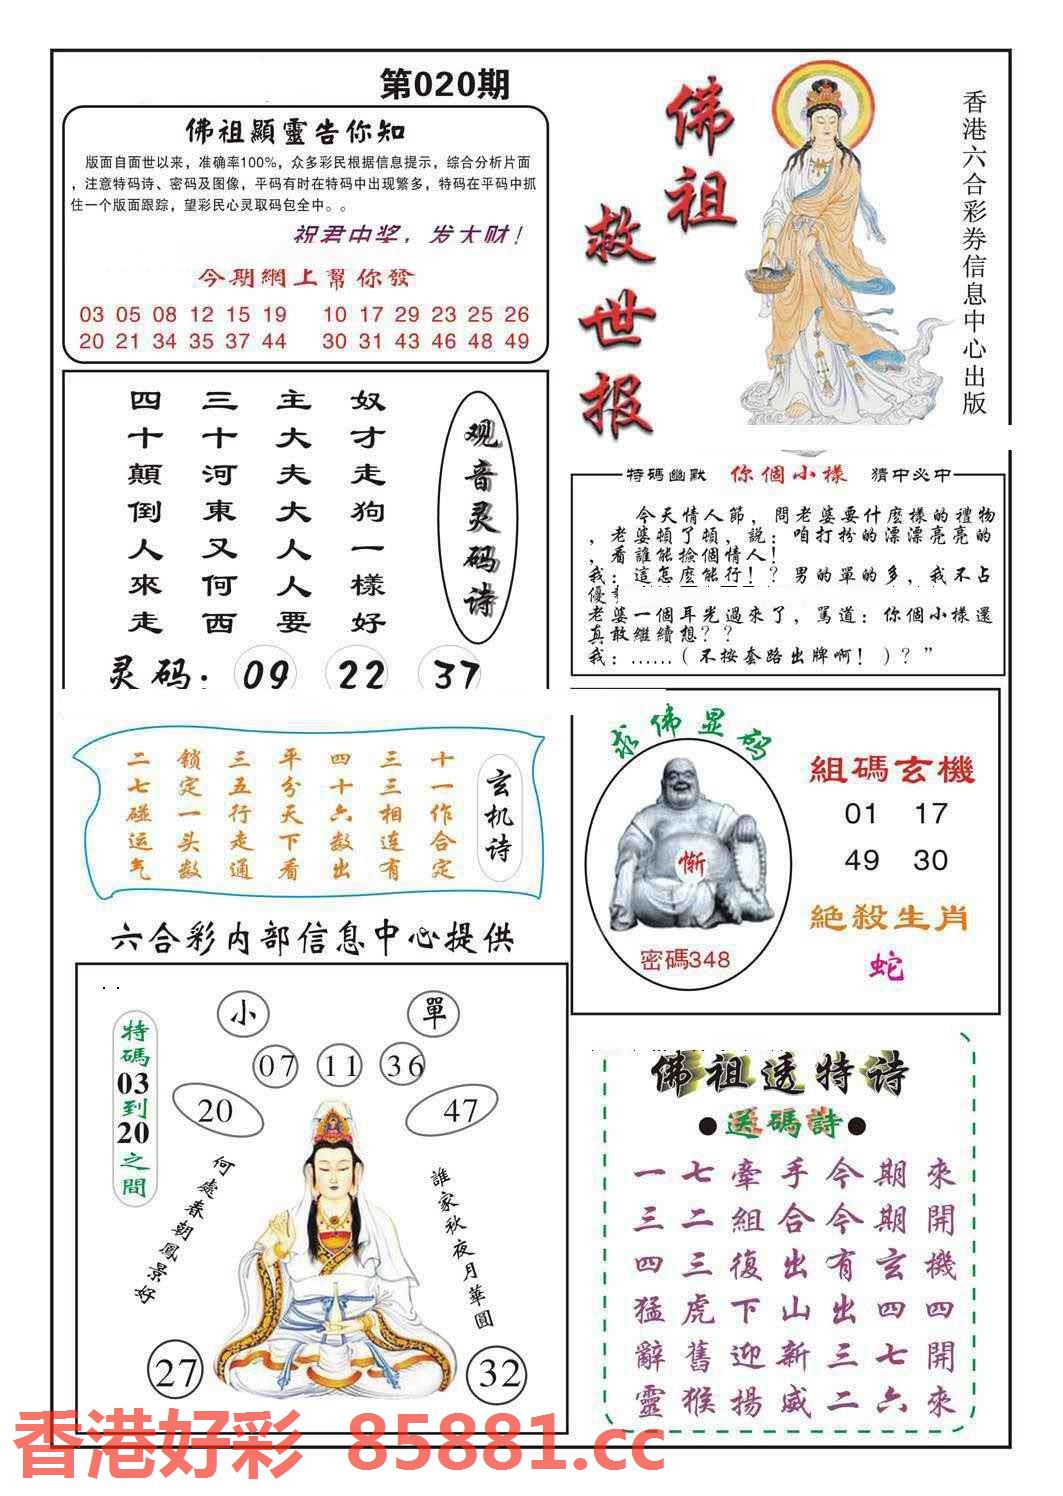 第020期
佛祖顯靈告你知
版面自面世以来，准确率100%，众多彩民根据信息提示，综合分析片面
，注意特码诗、密码及图像，平码有时在特码中出现繁多，特码在平码中抓
住一个版面跟踪，望彩民心灵取码包全中。。
祝君中奖，发大财！
今期網上幫你發
03 05 08 12 15 19 10 17 29 23 25 26
20 21 34 35 37 44 30 31 43 46 48 49
佛祖
救世报
香港六合彩券信息中心出版
观音灵码诗
奴才走狗一樣好
主大夫大人人要
三十河東又何西
四十顛倒人來走
灵码：09 22 37
特碼幽默 你個小樣 猜中必中
今天情人節，問老婆要什麼樣的禮物
，老婆頓了頓，説：咱打扮的漂漂亮亮的
，看誰能撿個情人！
我：這怎麽能行！？男的單的多，我不占
優
老婆一個耳光過來了，駡道：你個小樣還
真敢繼續想？？
我：……（不按套路出牌啊！）？”
玄机诗
十一作合定
三三相连有
四十六数出
平分天下看
三五行走通
锁定一头数
二七碰运气
求佛显码
惭
密碼348
組碼玄機
01 17
49 30
絕殺生肖
蛇
六合彩内部信息中心提供
小 單
特碼03到20之間
07 11 36
20 47
何處春朝鳳景好
誰家秋夜月華圓
27 32
佛祖透特诗
●送碼詩●
一七牽手今期來
三二組合今期開
四三復出有玄機
猛虎下山出四四
辭舊迎新三七開
靈猴揚威二六來
香港好彩 85881.cc